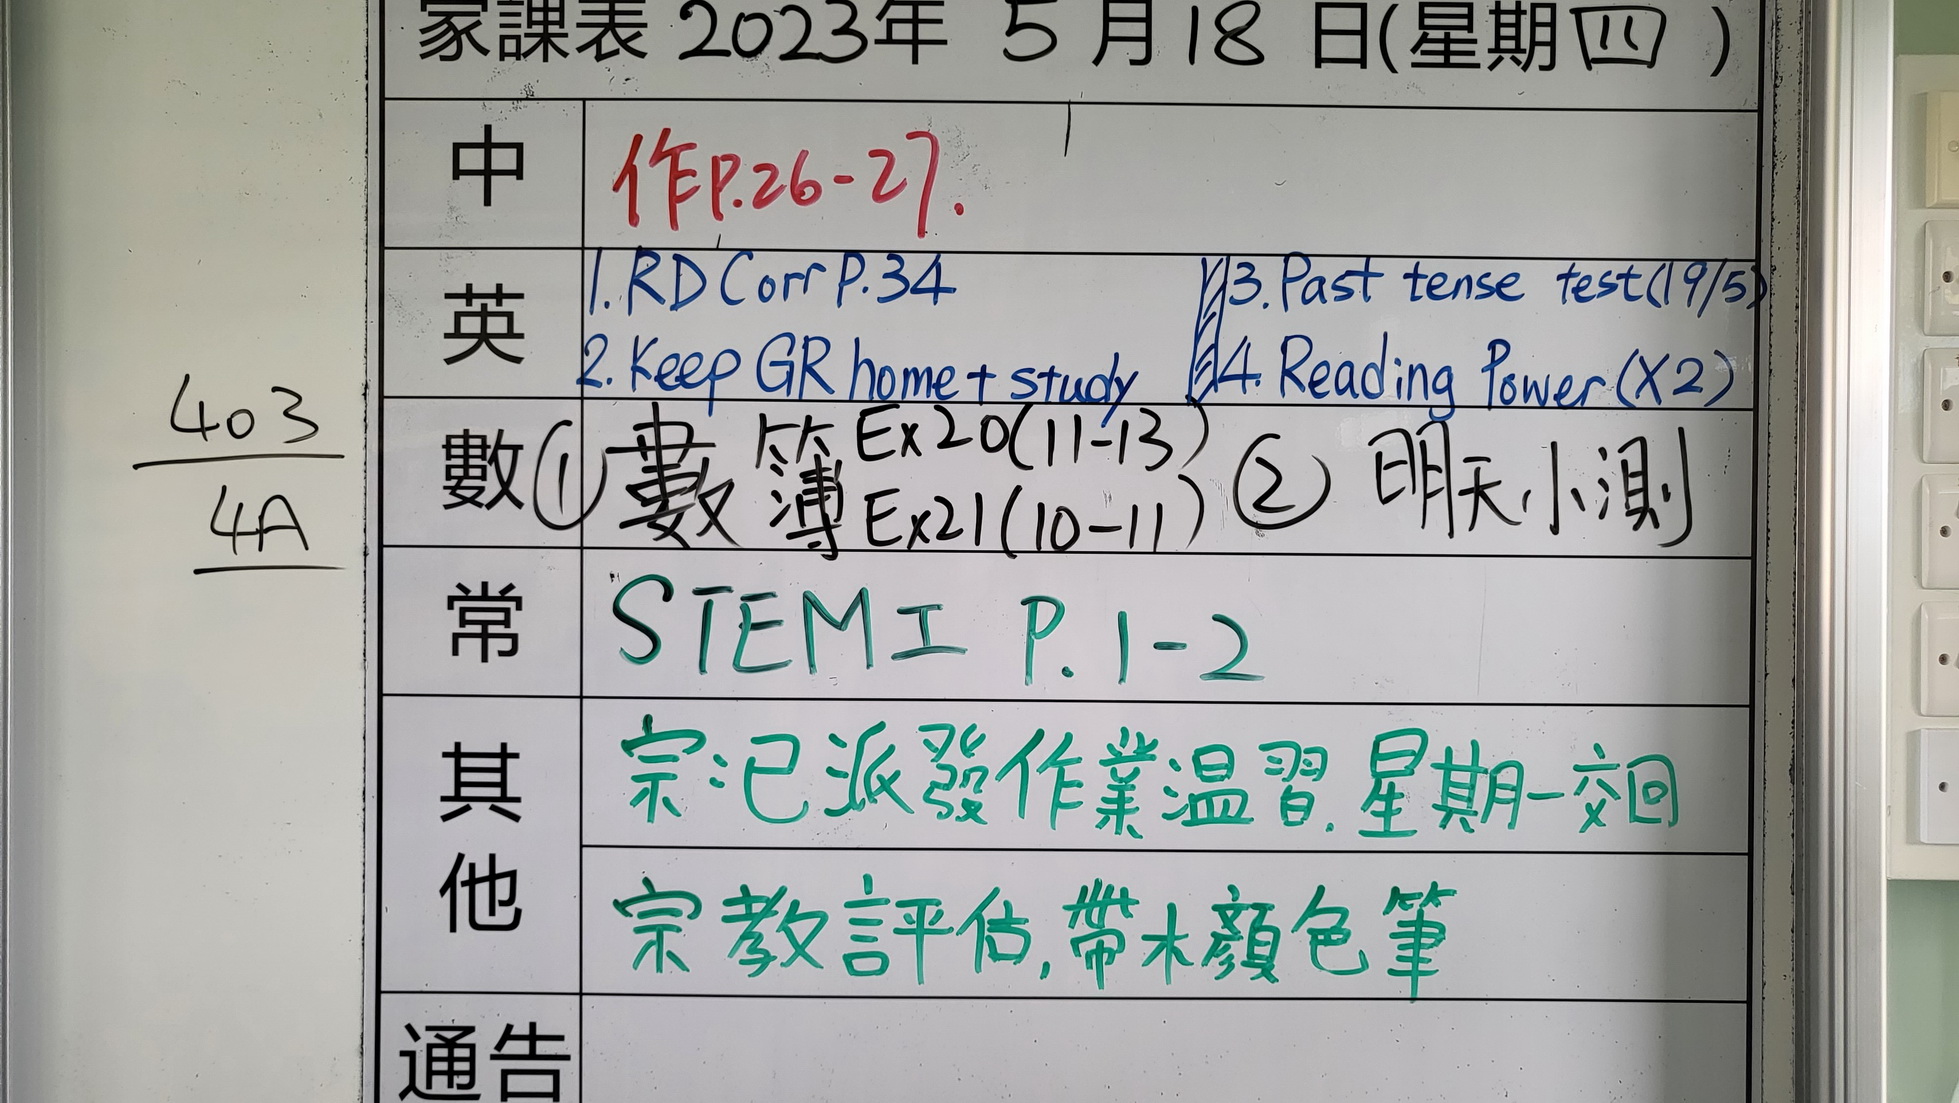 家課表 2023年 5月18日(星期四)
中 作P.26-27.
英 1.RD Corr P.34 3.Past tense test(19/5)
2.Keep GR home + study 4.Reading Power(X2)
403
4A
數 ① 數簿 Ex20(11-13) ② 明天小測
Ex21(10-11)
常 STEM工 P.1-2
其他
宗:已派發作業溫習.星期一交回
宗教評估,帶木顏色筆
通告